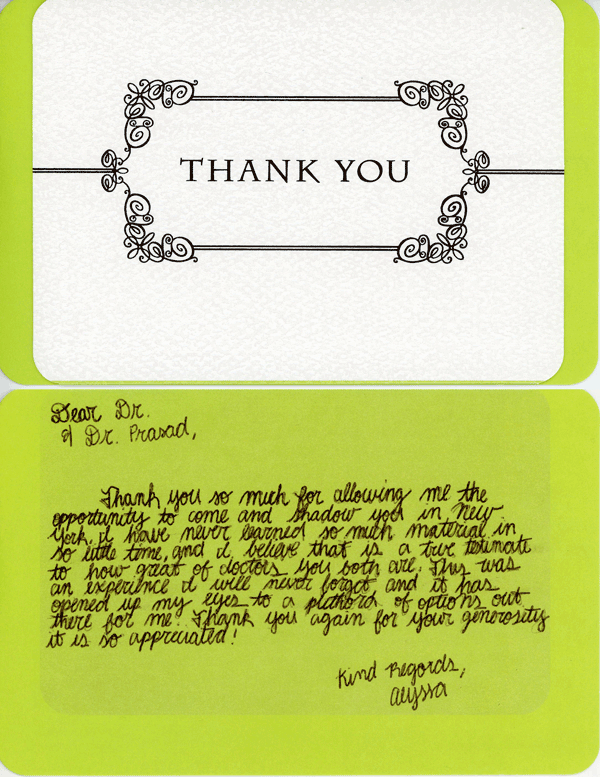 THANK YOU
Dear Dr.
& Dr. Prasad,
Thank you so much for allowing me the
opportunity to come and shadow you in New
York. I have never learned so much material in
so little time, and I believe that is a true testimate
to how great of doctors you both are. This was
an experience I will never forget and it has
opened up my eyes to a plethord of options out
there for me! Thank you again for your generosity
it is so appreciated!
Kind Regards,
Alyssa